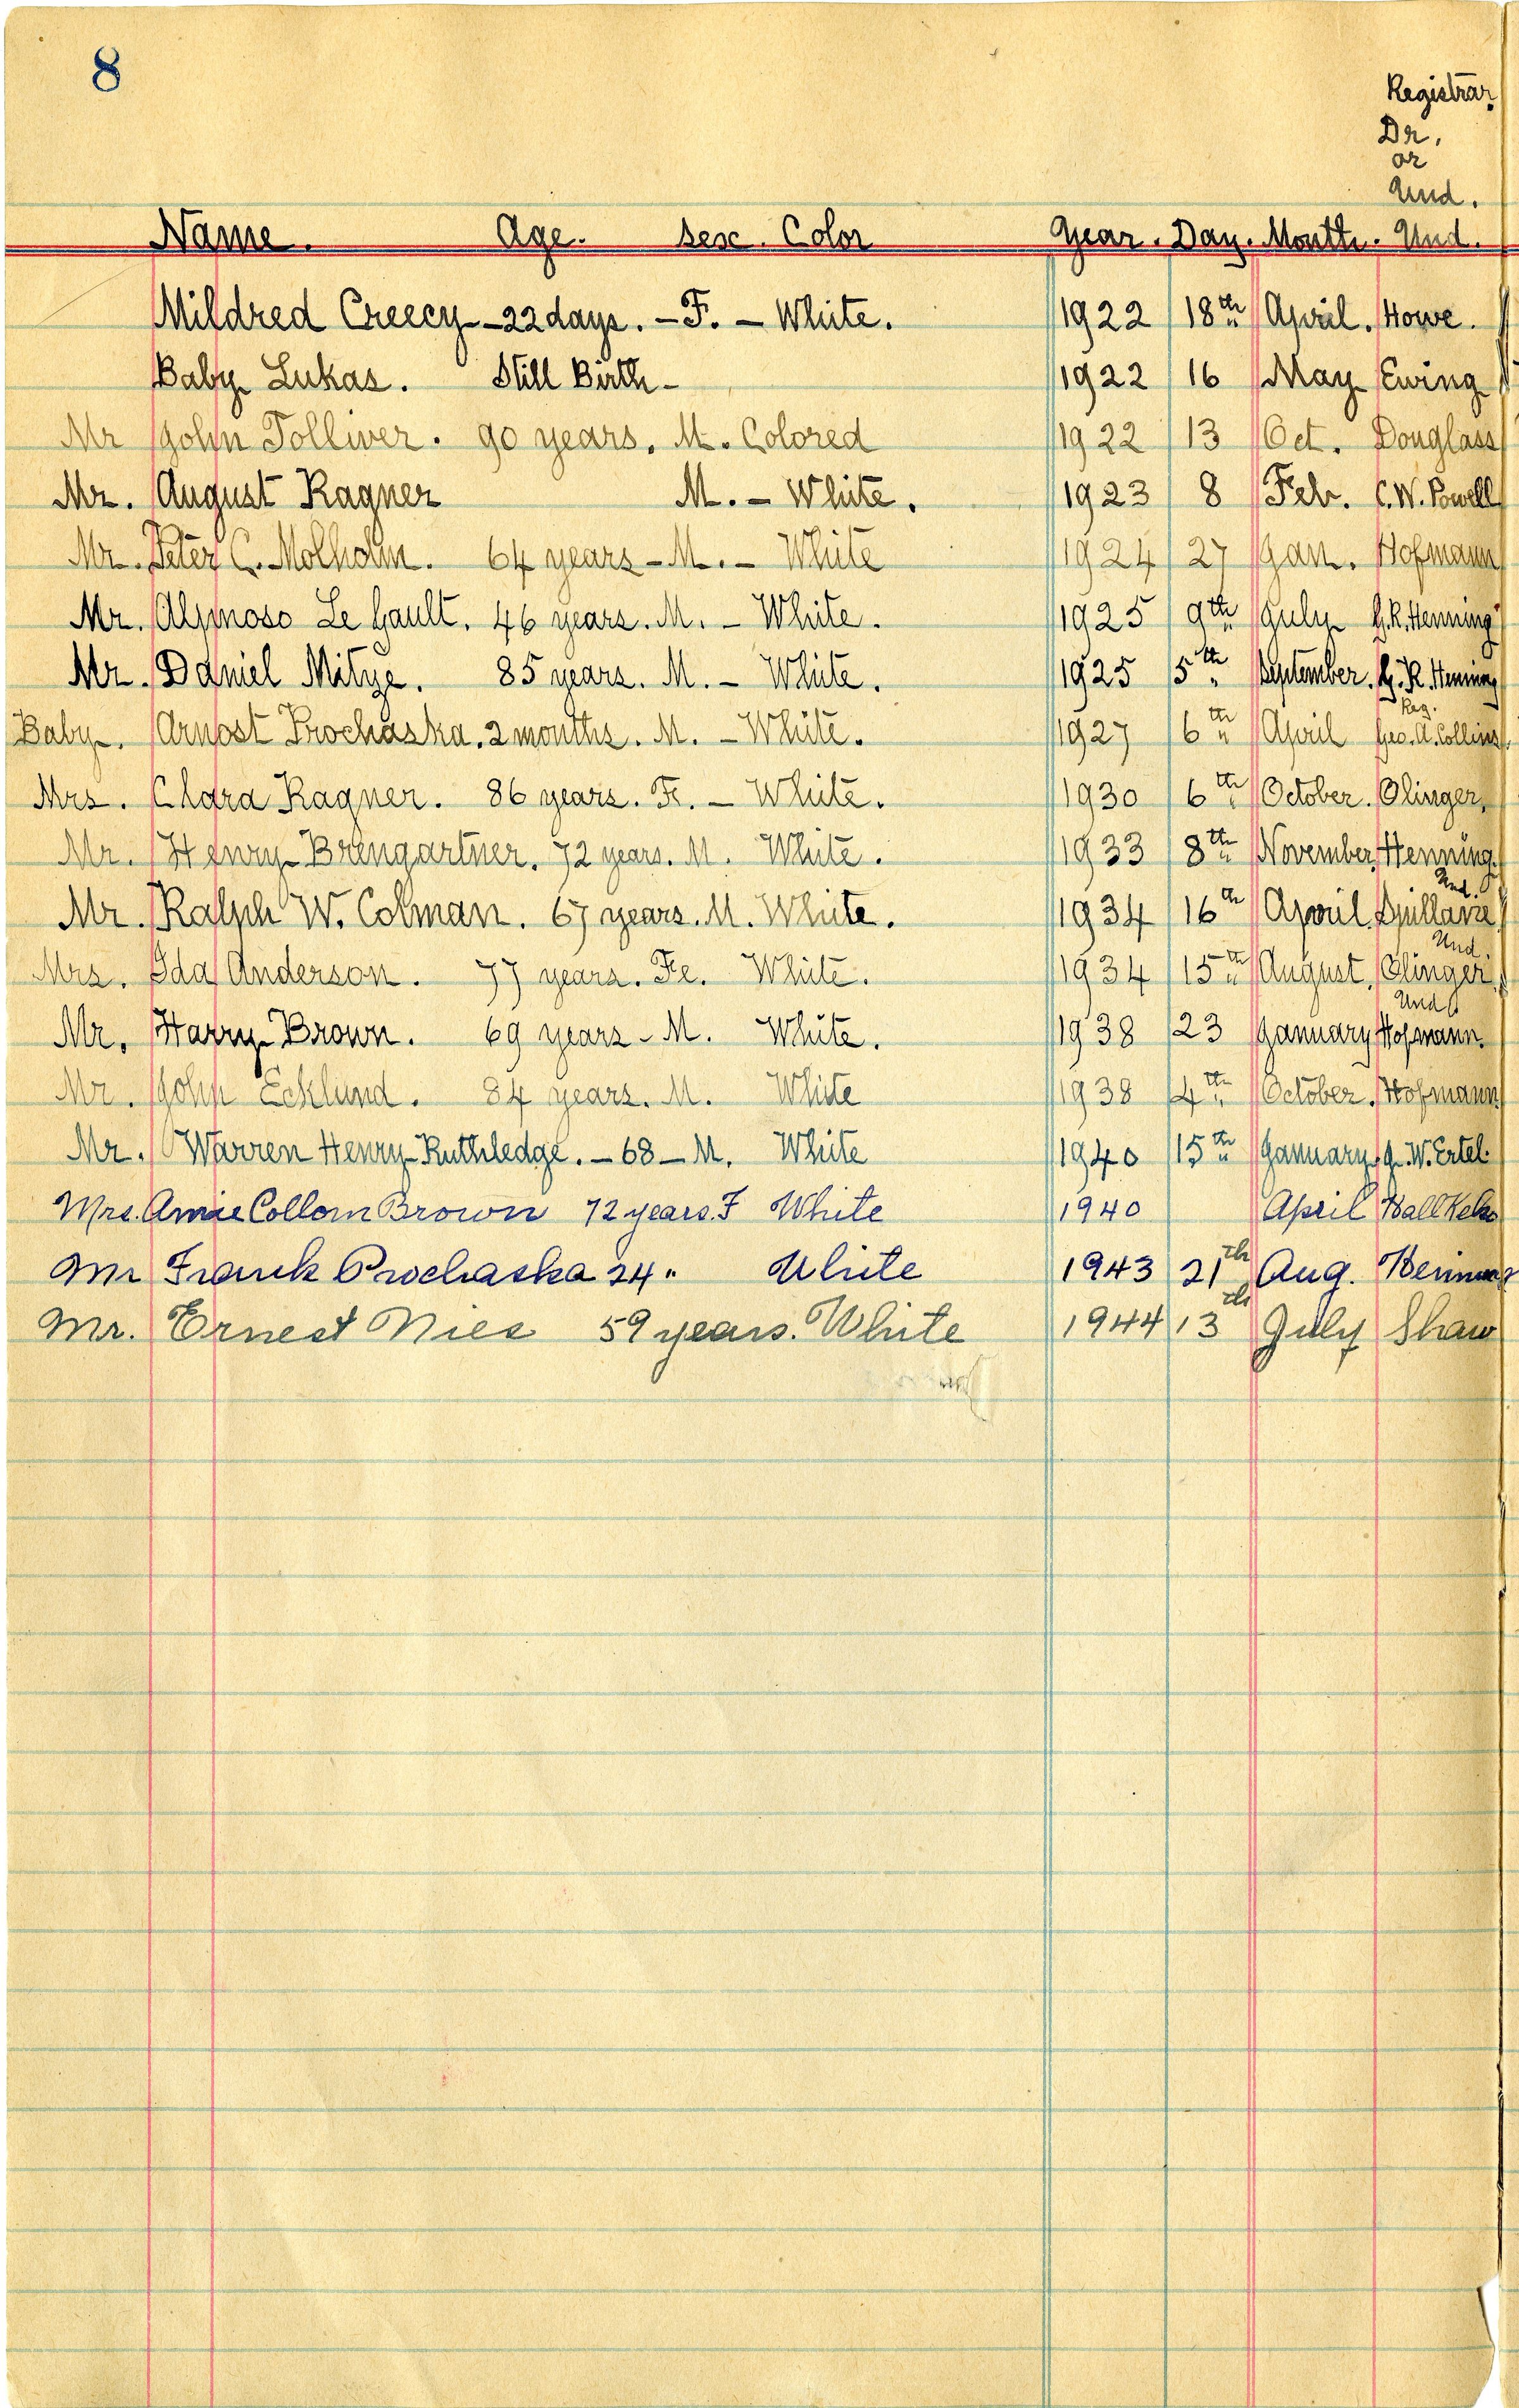 8
Registrar.
Dr.
or
Und.
Name. Age. Sex. Color Year. Day. Month. Und.
Mildred Creecy - 22 days. - F. - White. 1922 18th April. Howe.
Baby Lukas. Still Birth - 1922 16 May Ewing
Mr John Tolliver. 90 years. M. Colored 1922 13 Oct. Douglass
Mr. August Ragner M. - White. 1923 8 Feb. C.W. Powell
Mr. Peter C. Molholm. 64 years - M. - White 1924 27 Jan. Hofmann
Mr. Le Gault. 46 years. M. - White. 1925 9th July G.R. Henning
Mr. Daniel Mitze. 85 years. M. - White. 1925 5th September. G.R. Henning
Reg.
Baby. Arnost Prochaska. 2 months. M. - White. 1927 6th April Geo. A. Collins.
Mrs. Clara Ragner. 86 years. Fe. - White. 1930 6th October. Olinger.
Mr. Henry Brengartner. 72 years. M. White. 1933 8th November Henning.
Und.
Mr. Ralph W. Colman. 67 years. M. White. 1934 16th April
Und.
Mrs. Ida Anderson. 77 years. Fe. White. 1934 15th August, Olinger
Und
Mr. Harry Brown. 69 years - M. White. 1938 23 January Hofmann.
Mr. John Ecklund. 84 years. M. White 1938 4th October. Hofmann
Mr. Warren Henry Ruthledge. - 68 - M. White 1940 15th January, J.W. Ertel.
Mrs. Collom Brown 72 years. F White 1940 April
Mr Frank Prochaska 24 " White 1943 21th Aug. Henning
Mr. Ernest Nies 59 years. White 1944 13th July Shaw